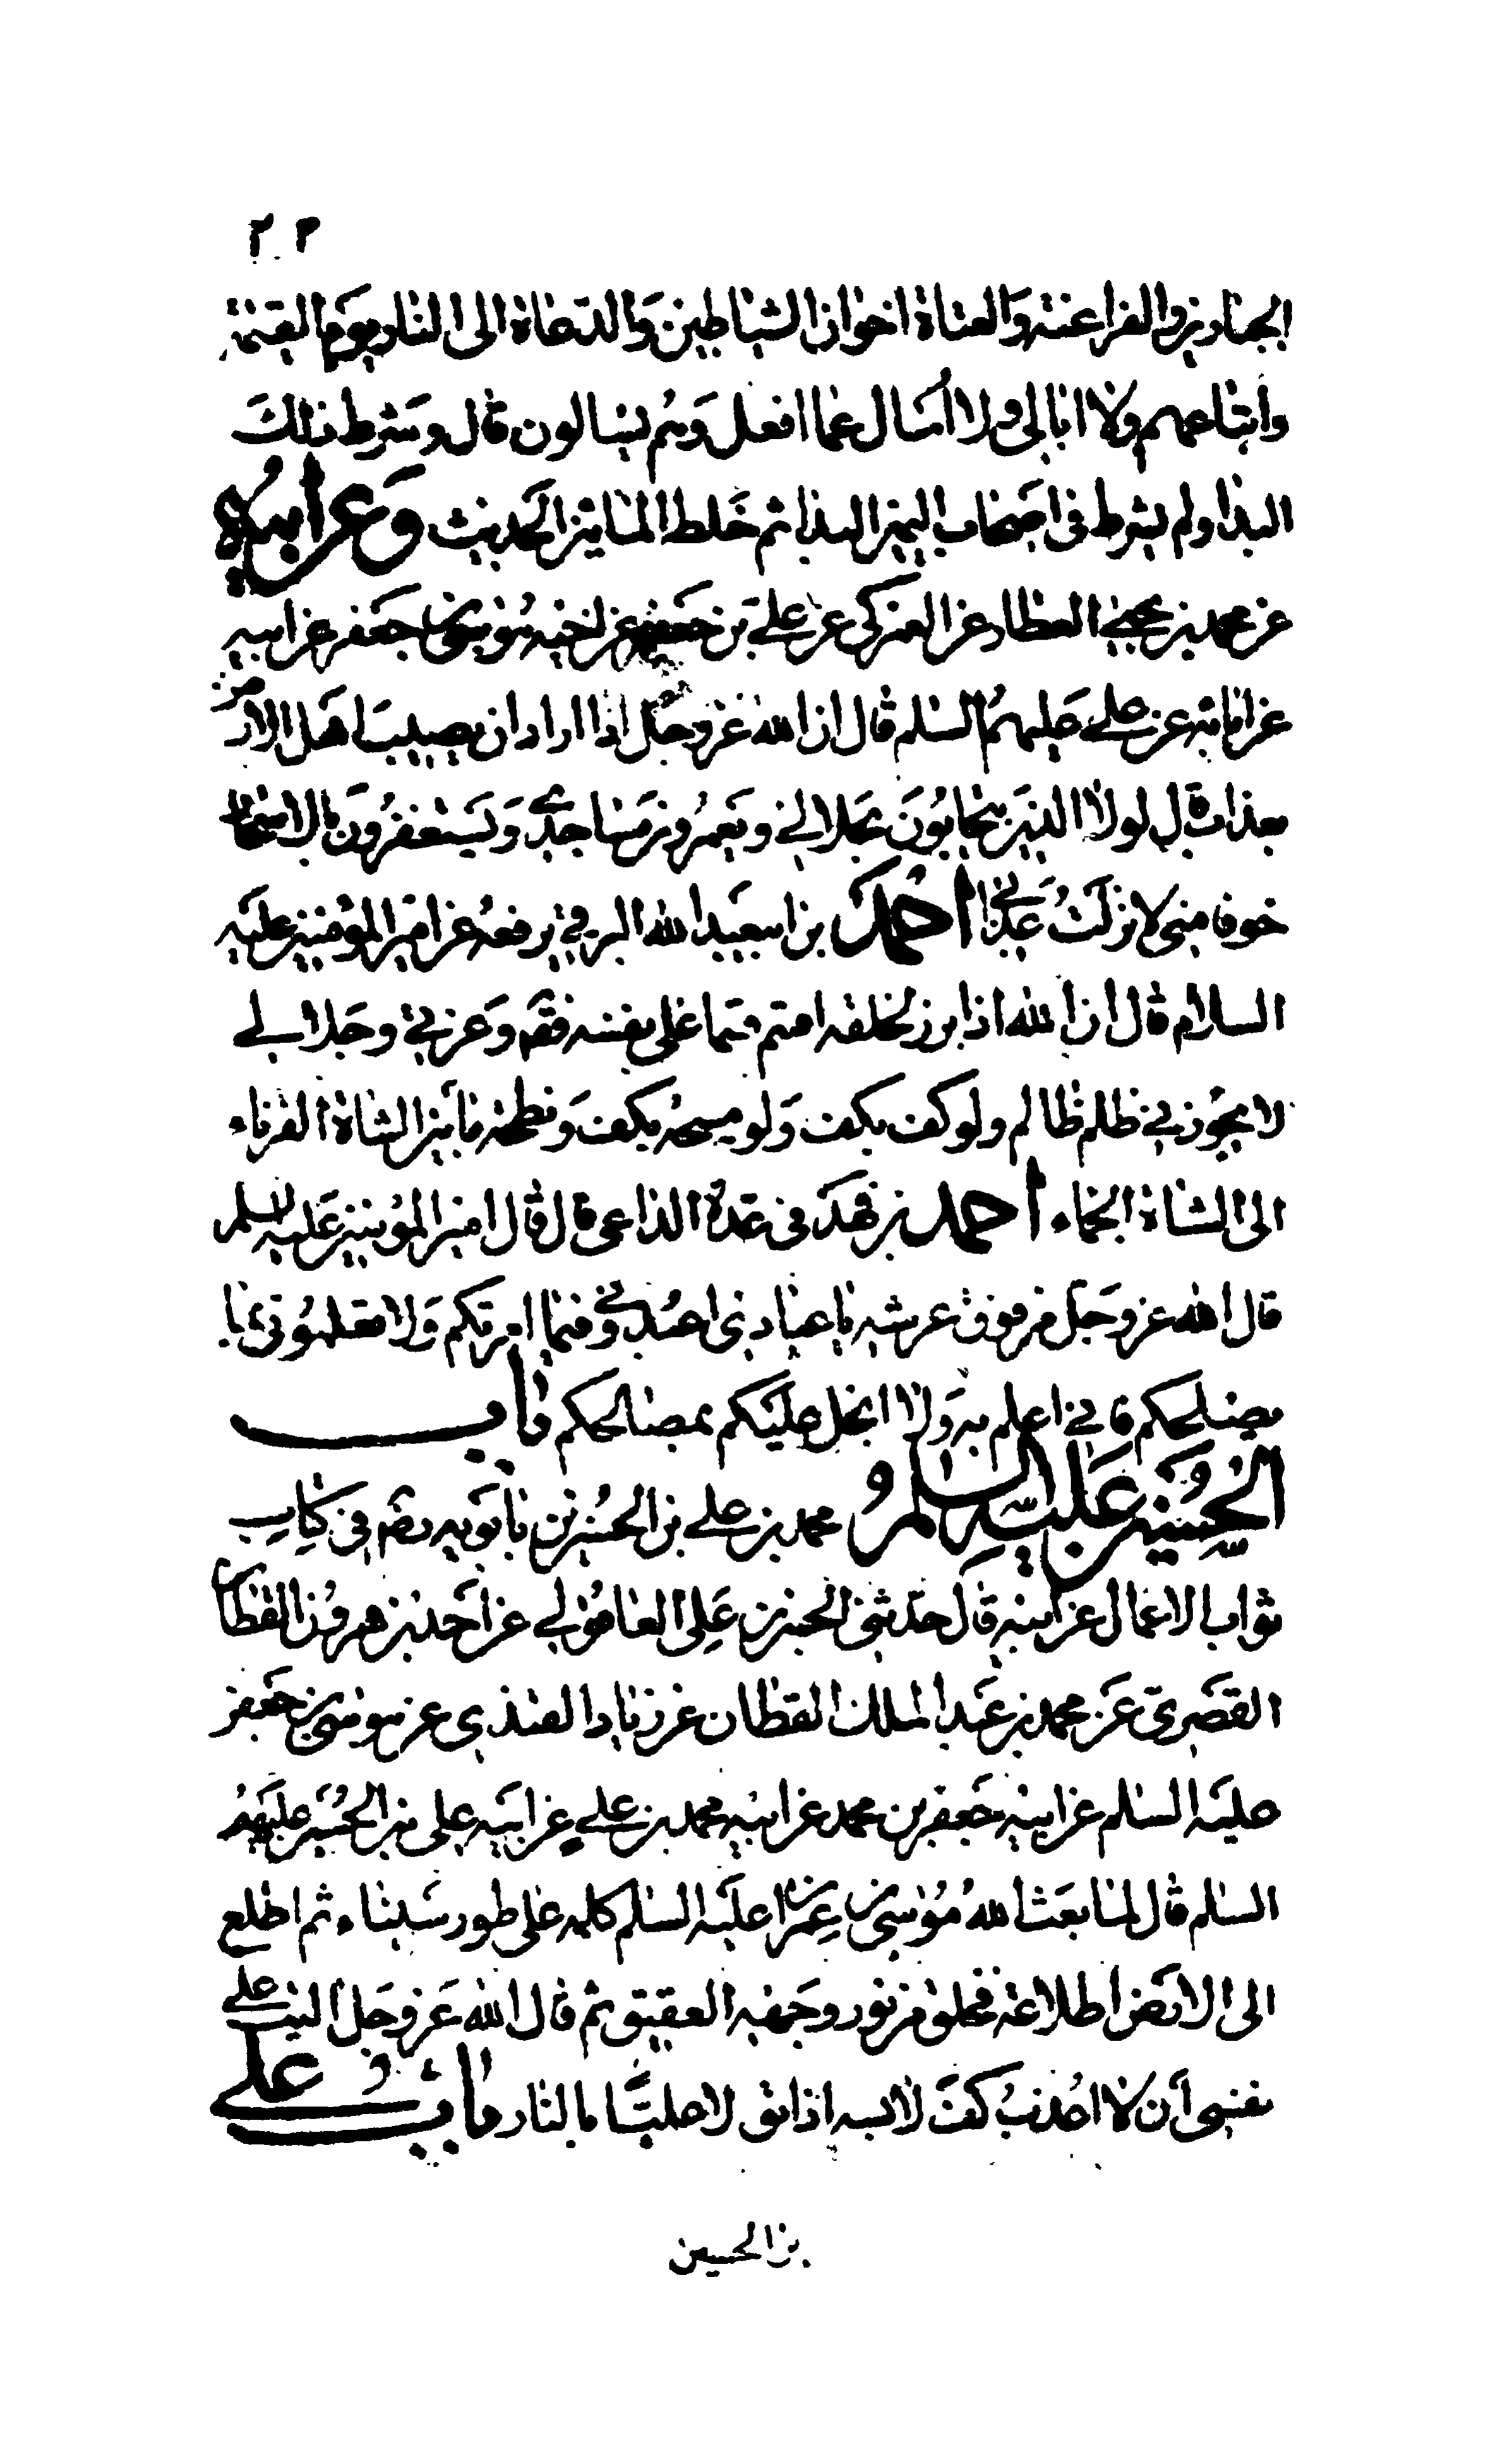 ٢٢
الجبارين والفراعنة والعتاة اخوان الشياطين والدعاة الى النار يوم القيمة
واتباعهم ولا ابالى ولا اسال عما افعل وهم يسالون قال وشرط ذلك
البدا ولم يشرط فى اصحاب اليمين البدا ثم خلط المائين الحديث وعن ابيه
عن محمد بن يحيى العطار عن العمركى عن على بن جعفر عن اخيه موسى بن جعفر عن ابيه
عن ابائه عن على عليهم السلم قال ان الله عز وجل اذا اراد ان يصيب اهل الارض
بعذاب قال لولا الذين يتحابون بجلالى ويعمرون مساجدى ويستغفرون بالاسحار
خوفا منى لانزلت عذابى احمد بن ابى عبد الله البرقى يرفعه عن امير المؤمنين عليه
السلام قال ان الله اذا برز لخلقه اقسم قسما على نفسه فقال وعزتى وجلالى
لا يجوزنى ظلم ظالم ولو كف بكف ولو مسحة بكف ونطحة ما بين الشاة القرناء
الى الشاة الجماء احمد بن فهد فى عدة الداعى قال قال امير المؤمنين عليه السلم
قال الله عز وجل من فوق عرشه يا عبادى اعبدونى فيما امرتكم ولا تعلمونى ما
يصلحكم فانى اعلم به ولا ابخل عليكم بمصالحكم باب
الحسين عليه السلام محمد بن على بن الحسين بن بابويه ره فى كتاب
ثواب الاعمال عن ابيه قال حدثنى الحسن بن على العاقولى عن احمد بن هرون القطان
القصرى عن محمد بن عبد الملك القطان عن زياد القندى عن موسى بن جعفر
عليه السلم عن ابيه جعفر بن محمد عن ابيه محمد بن على عن ابيه على بن الحسين عليهم
السلم قال لما بعث الله موسى بن عمران عليه السلم كلمه على طور سيناء ثم اطلع
الى الارض اطلاعة فخلق من نور وجهه العقيق ثم قال الله عز وجل اليت على
نفسى ان لا اعذب كف لابسه اذا تولى عليا بالنار باب على
بن الحسين